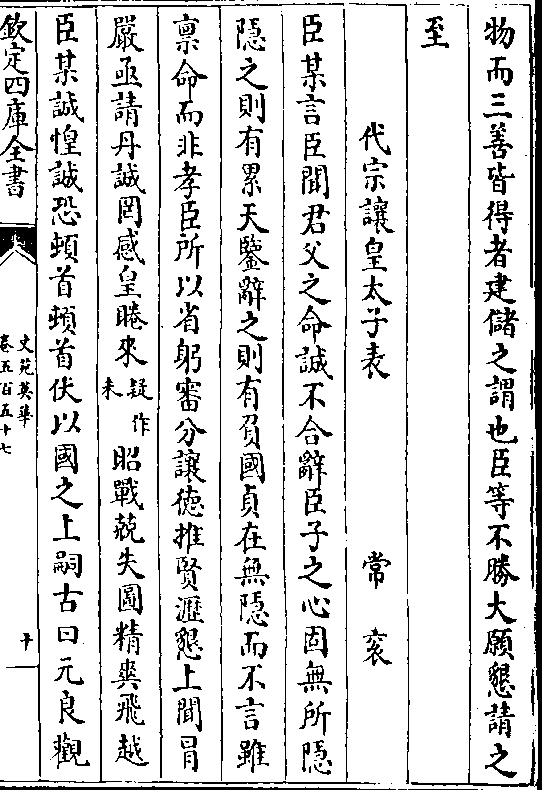 物而三善皆得者建儲之謂也臣等不勝大願懇請之
至
代宗讓皇太子表 常衮
臣某言臣聞君父之命誠不合辭臣子之心固無所隱
隱之則有累天鑒辭之則有負國貞在無隱而不言雖
禀命而非孝臣所以省躬審分讓徳推賢瀝懇上聞冒
嚴亟請丹誠罔感皇睠來疑作未昭戰兢失圖精爽飛越
臣某誠惶誠恐頓首頓首伏以國之上嗣古曰元良觀
欽定四庫全書
文苑英華
卷五百五十七
十